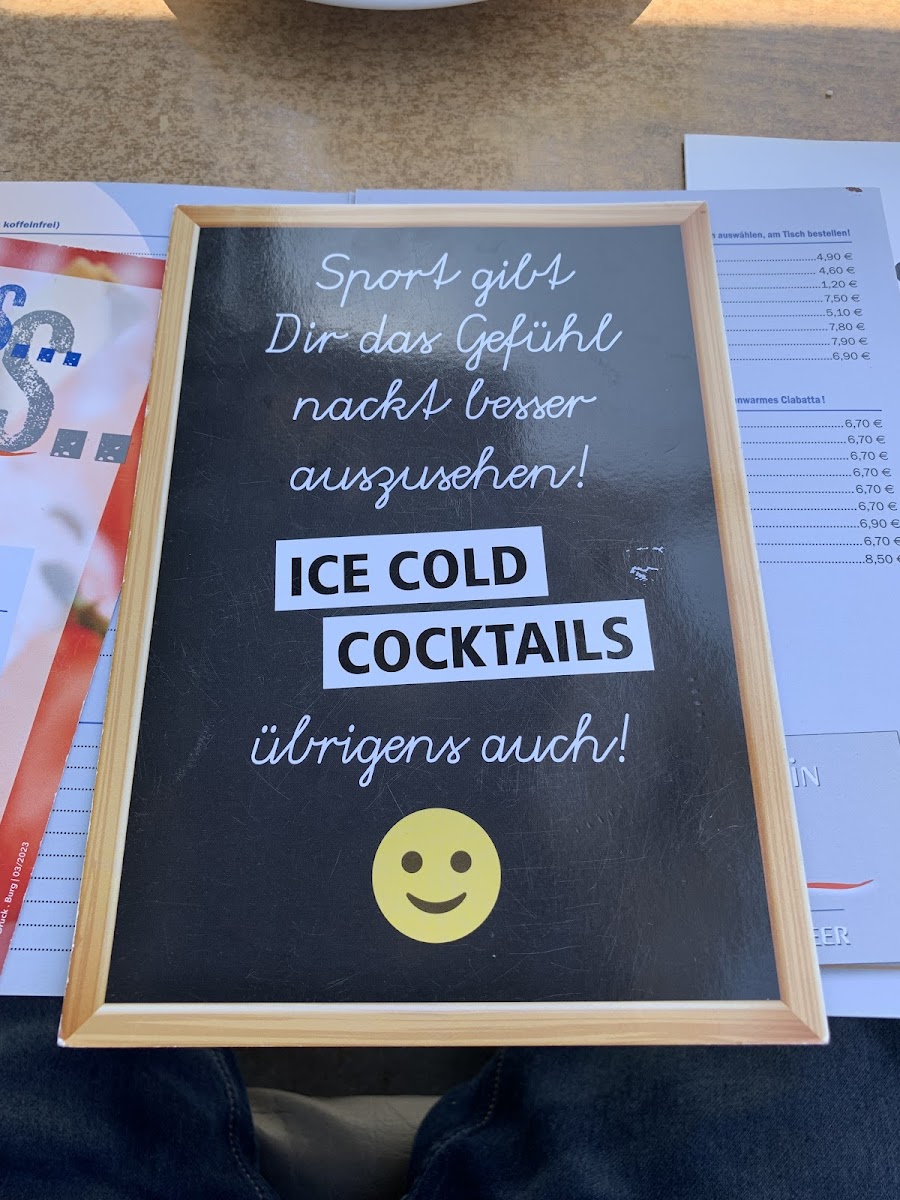 koffeinfrei)
s...
s...
auswählen, am Tisch bestellen!
4,90 €
4,60 €
1,20 €
7,50 €
5,10 €
7,80 €
7,90 €
6,90 €
Sport gibt
Dir das Gefühl
nackt besser
auszusehen!
ICE COLD
COCKTAILS
übrigens auch!
Ciabatta!
6,70 €
6,70 €
6,70 €
6,70 €
6,70 €
6,70 €
6,90 €
6,70 €
8,50 €
Burg | 03/2023